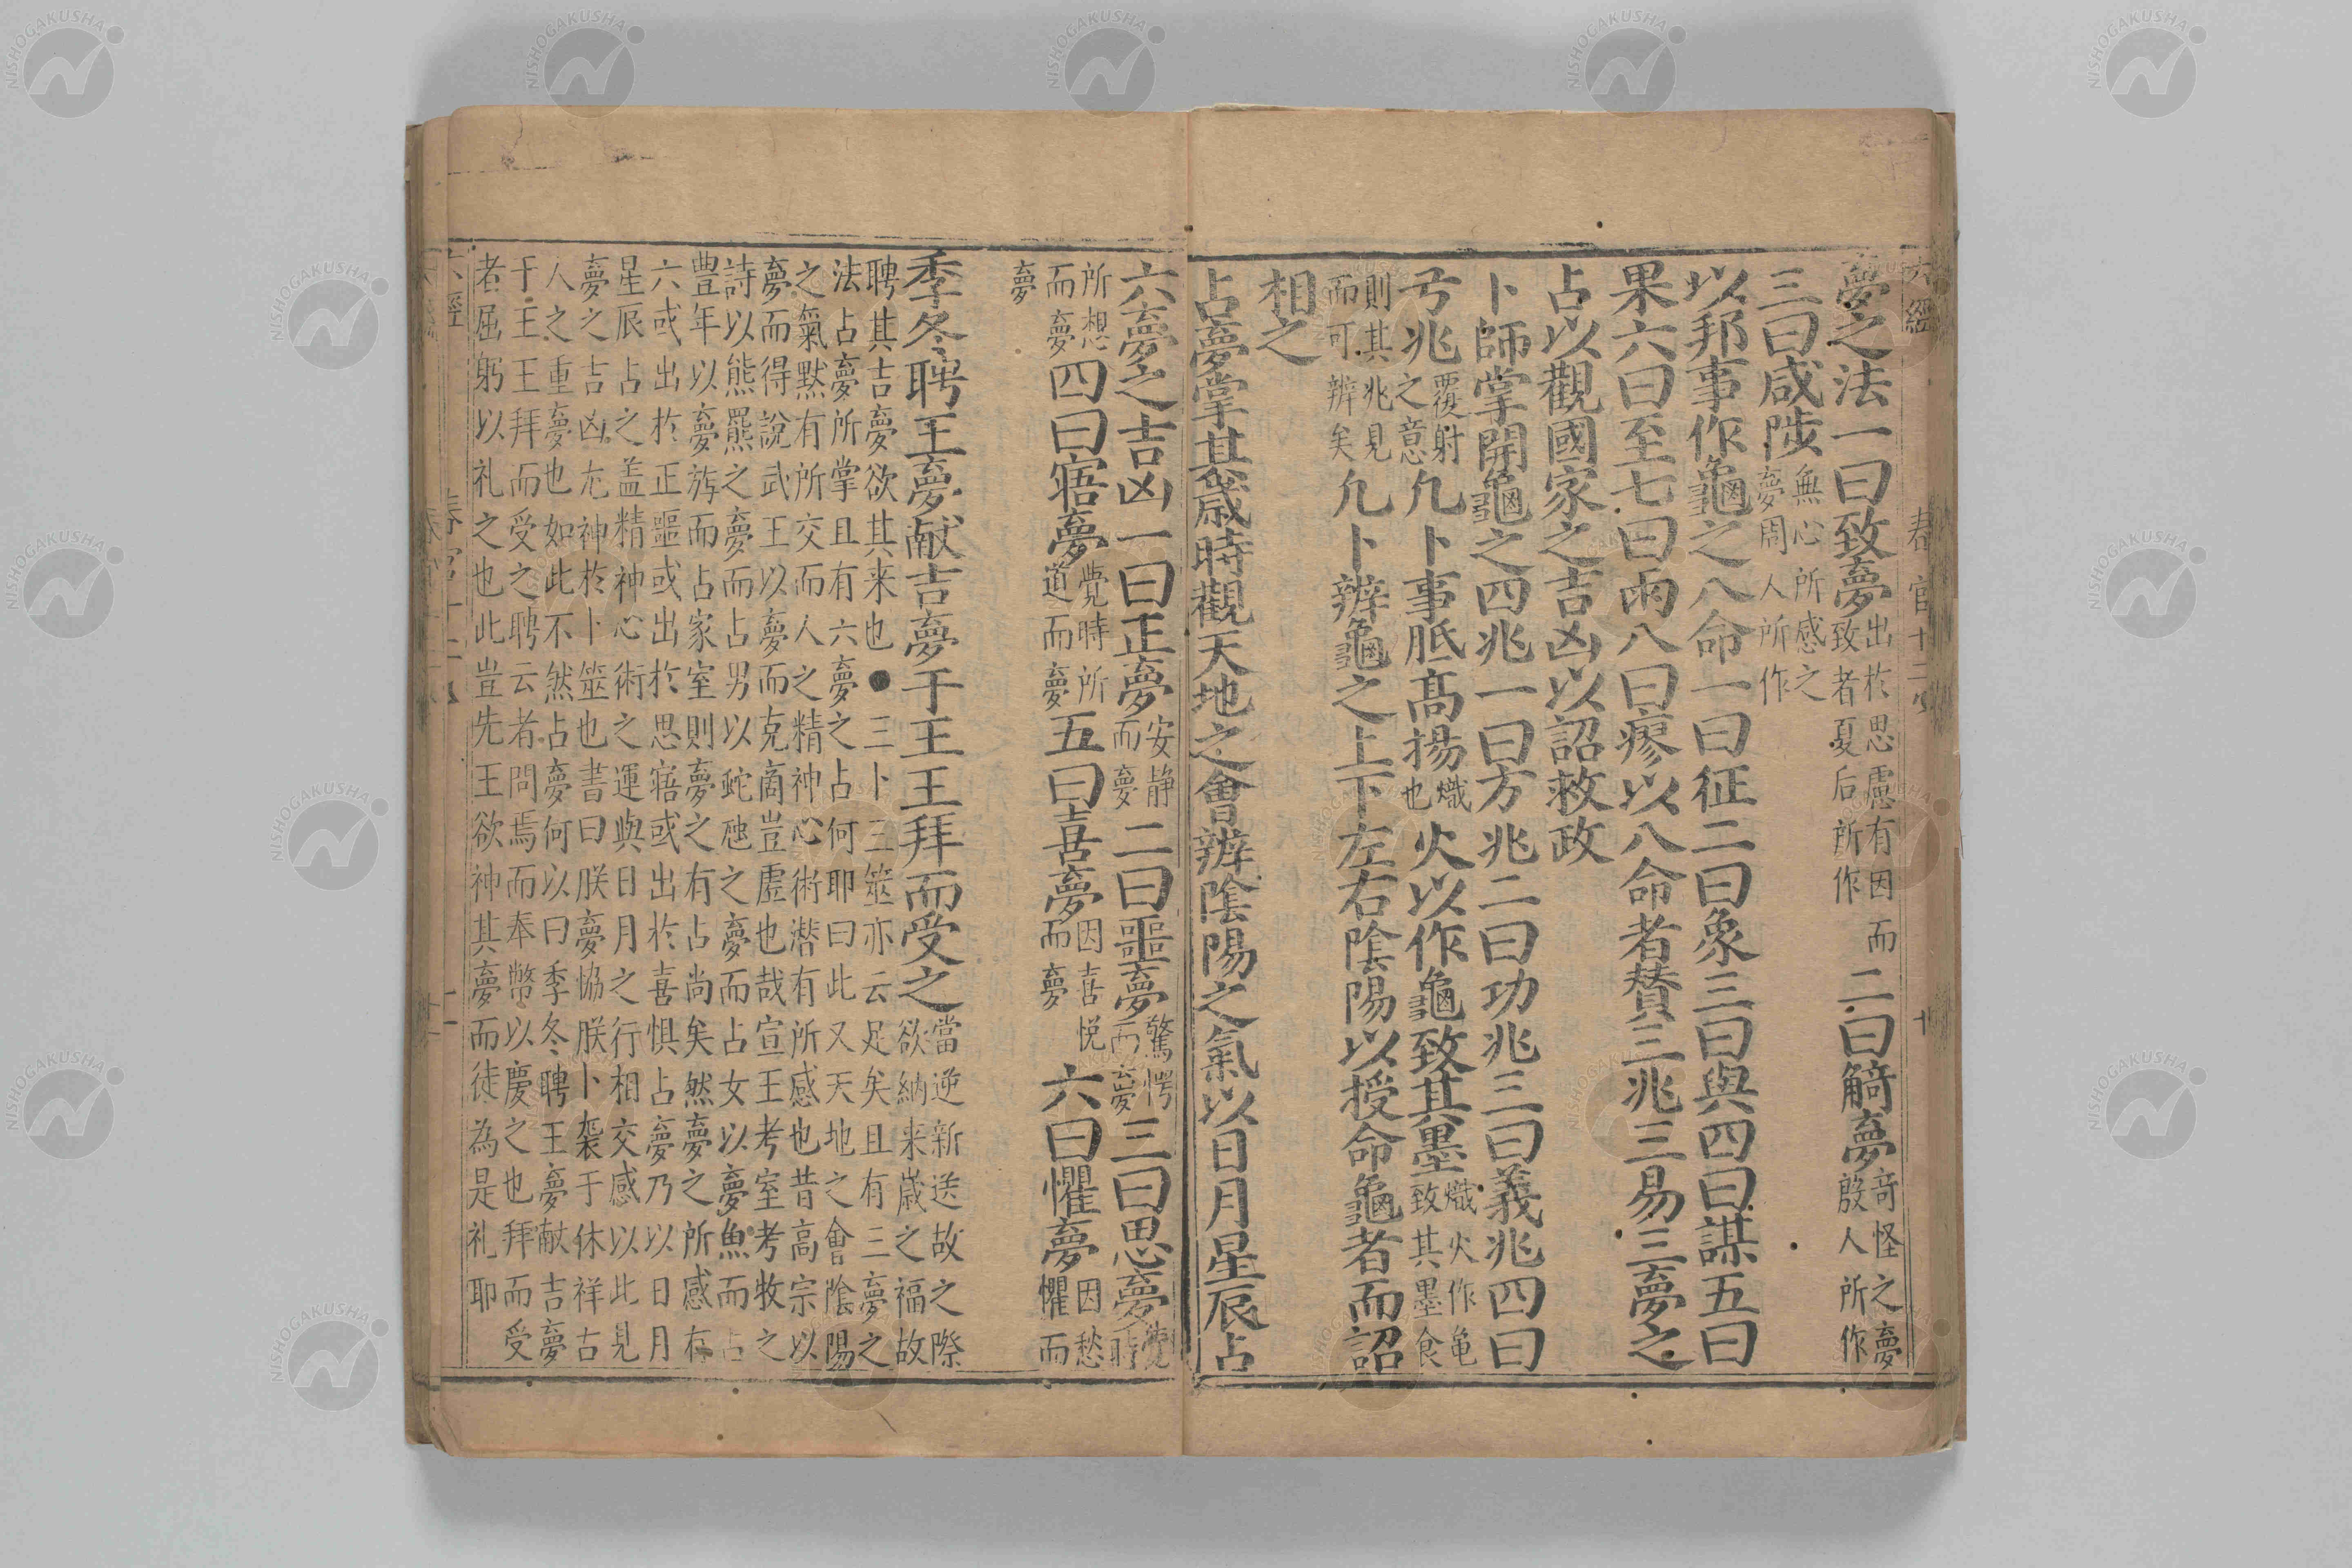 夢之法一曰致夢出於思慮有因而致者夏后所作二曰觭夢奇怪之夢殷人所作
三曰咸陟無心所感之夢周人所作
以邦事作龜之八命一曰征二曰象三曰與四曰謀五曰
果六曰至七曰雨八曰瘳以八命者賛三兆三易三夢之
占以觀國家之吉凶以詔救政
卜師掌開龜之四兆一曰方兆二曰功兆三曰義兆四曰
弓兆覆射之意凢卜事眡高揚熾也火以作龜致其墨熾火作亀致其墨食
則其兆見而可辨矣凢卜辨龜之上下左右陰陽以授命龜者而詔
相之
占夢掌其歲時觀天地之會辨陰陽之氣以日月星辰占
六夢之吉凶一曰正夢安静而夢二曰噩夢驚愕而夢三曰思夢覺時
所想而夢四曰寤夢覺時所道而夢五曰喜夢因喜悦而夢六曰懼夢因愁懼而
夢
季冬聘王夢献吉夢于王王拜而受之當逆新送故之際欲納来歲之福故
聘其吉夢欲其来也●三卜三筮亦云足矣且有三夢之
法占夢所掌且有六夢之占何耶曰此又天地之會陰陽
之氣默有所交而人之精神心術潜有所感也昔高宗以
夢而得說武王以夢而克商豈虚也哉宣王考室考牧之
詩以熊羆之夢而占男以蛇虺之夢而占女以夢魚而占
豊年以夢旐而占家室則夢之有占尚矣然夢之所感有
六或出於正噩或出於思寤或出於喜惧占夢乃以日月
星辰占之盖精神心術之運與日月之行相交感以此見
夢之吉凶尢神於卜筮也書曰朕夢恊朕卜襲于休祥古
人之重夢也如此不然占夢何以曰季冬聘王夢献吉夢
于王王拜而受之聘云者問焉而奉幣以慶之也拜而受
者屈躬以礼之也此豈先王欲神其夢而徒為是礼耶
六經
春官十二
十